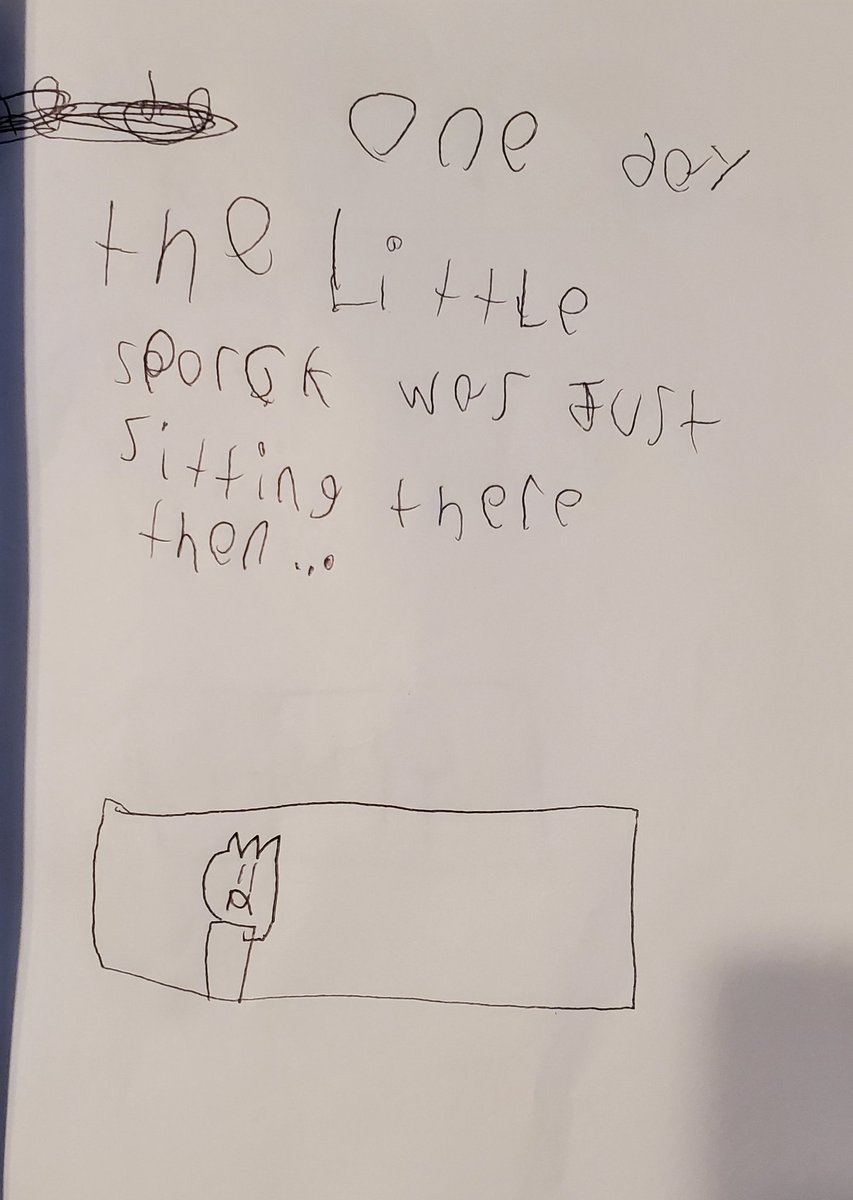 One day
the Little
sparck was Just
sitting there
then...